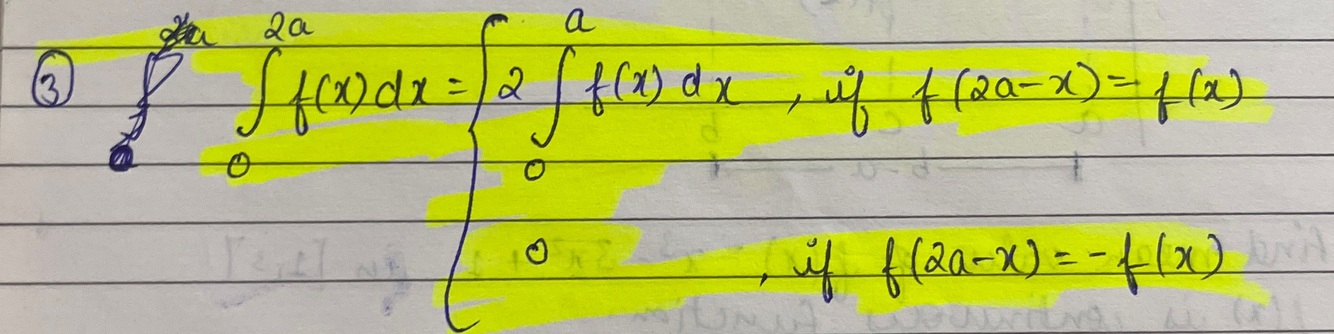 ③ ∫₀²ᵃ f(x) dx = { 2 ∫₀ᵃ f(x) dx , if f(2a-x) = f(x)
0 , if f(2a-x) = -f(x)